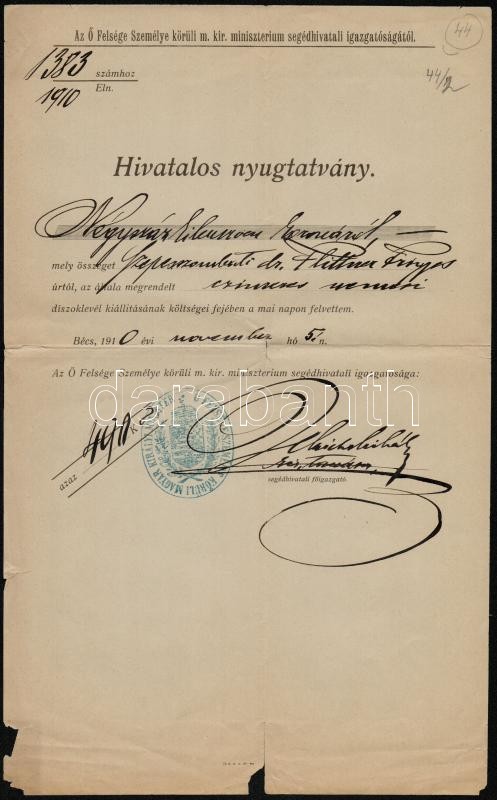 Az Ő Felsége Személye körüli m. kir. miniszterium segédhivatali igazgatóságától.
44
1383 számhoz
1910 Eln.
44/2
Hivatalos nyugtatvány.
Négyszáz kilenczven koronáról
mely összeget Szepesszombati dr. Plittner Frigyes
úrtól, az általa megrendelt czímeres nemesi
díszoklevél kiállításának költségei fejében a mai napon felvettem.
Bécs, 1910 évi november hó 5.n.
Az Ő Felsége Személye körüli m. kir. miniszterium segédhivatali igazgatósága:
darabanth
azaz 490 K
KÖRÜLI MAGYAR KIRÁLYI
segédhivatali főigazgató.